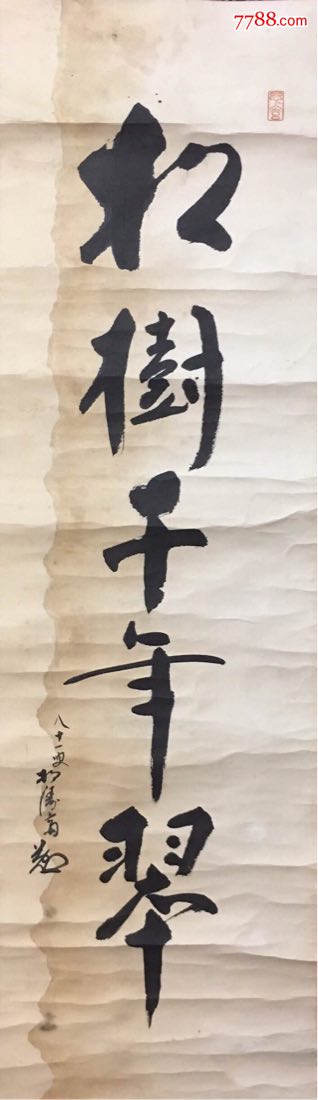 7788.com
松樹千年翠
八十一叟松濤斎